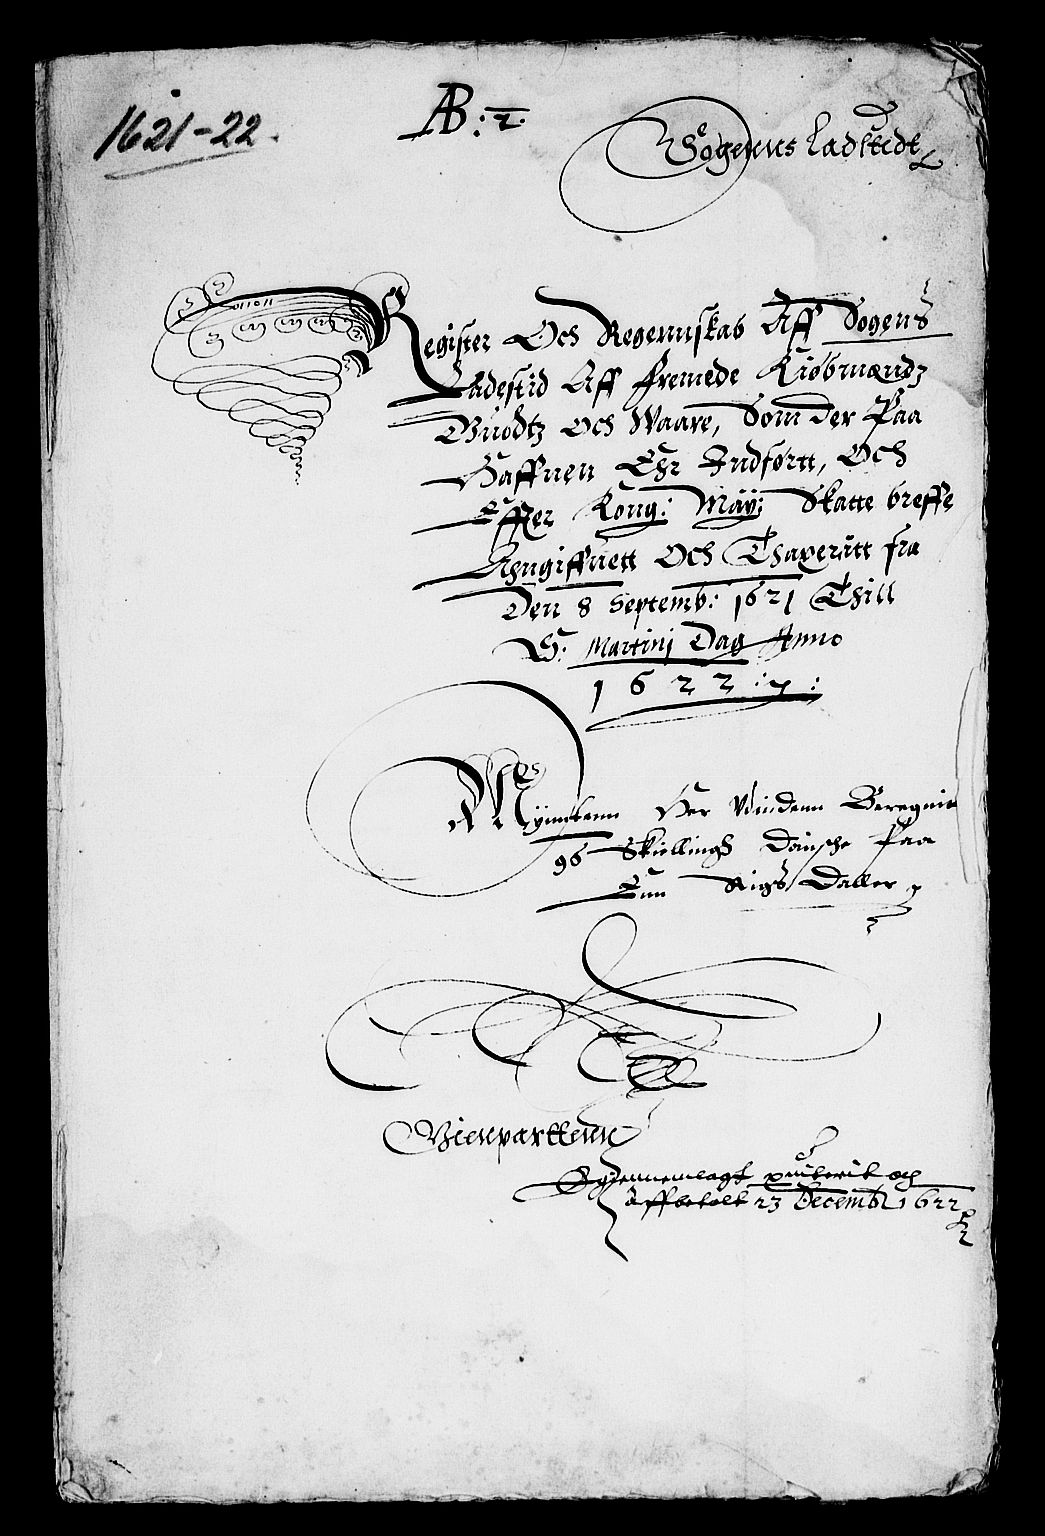 1621-22.
AB: 2.
Sognens Ladstedt
Register Och Regennskab Aff Sogens
Ladestid Aff fremede Kiøbmændz
Guodtz och Waare, Som der Paa
Haffnen Ehr Indførtt, Och
Effter Kong: May: Skatte breffe
Anngiffuett Och Thaxeritt fra
Den 8 Septemb: 1621 Thill
S: Martinj Dag Anno
1622
Mynntenn Her Vdindenn Beregnis
96 Skiellings Danshe Paa
Enn Rigs Daller
Gienparttenn
Igiennemlagt quiterit och
affbetalt 23 Decemb 1622